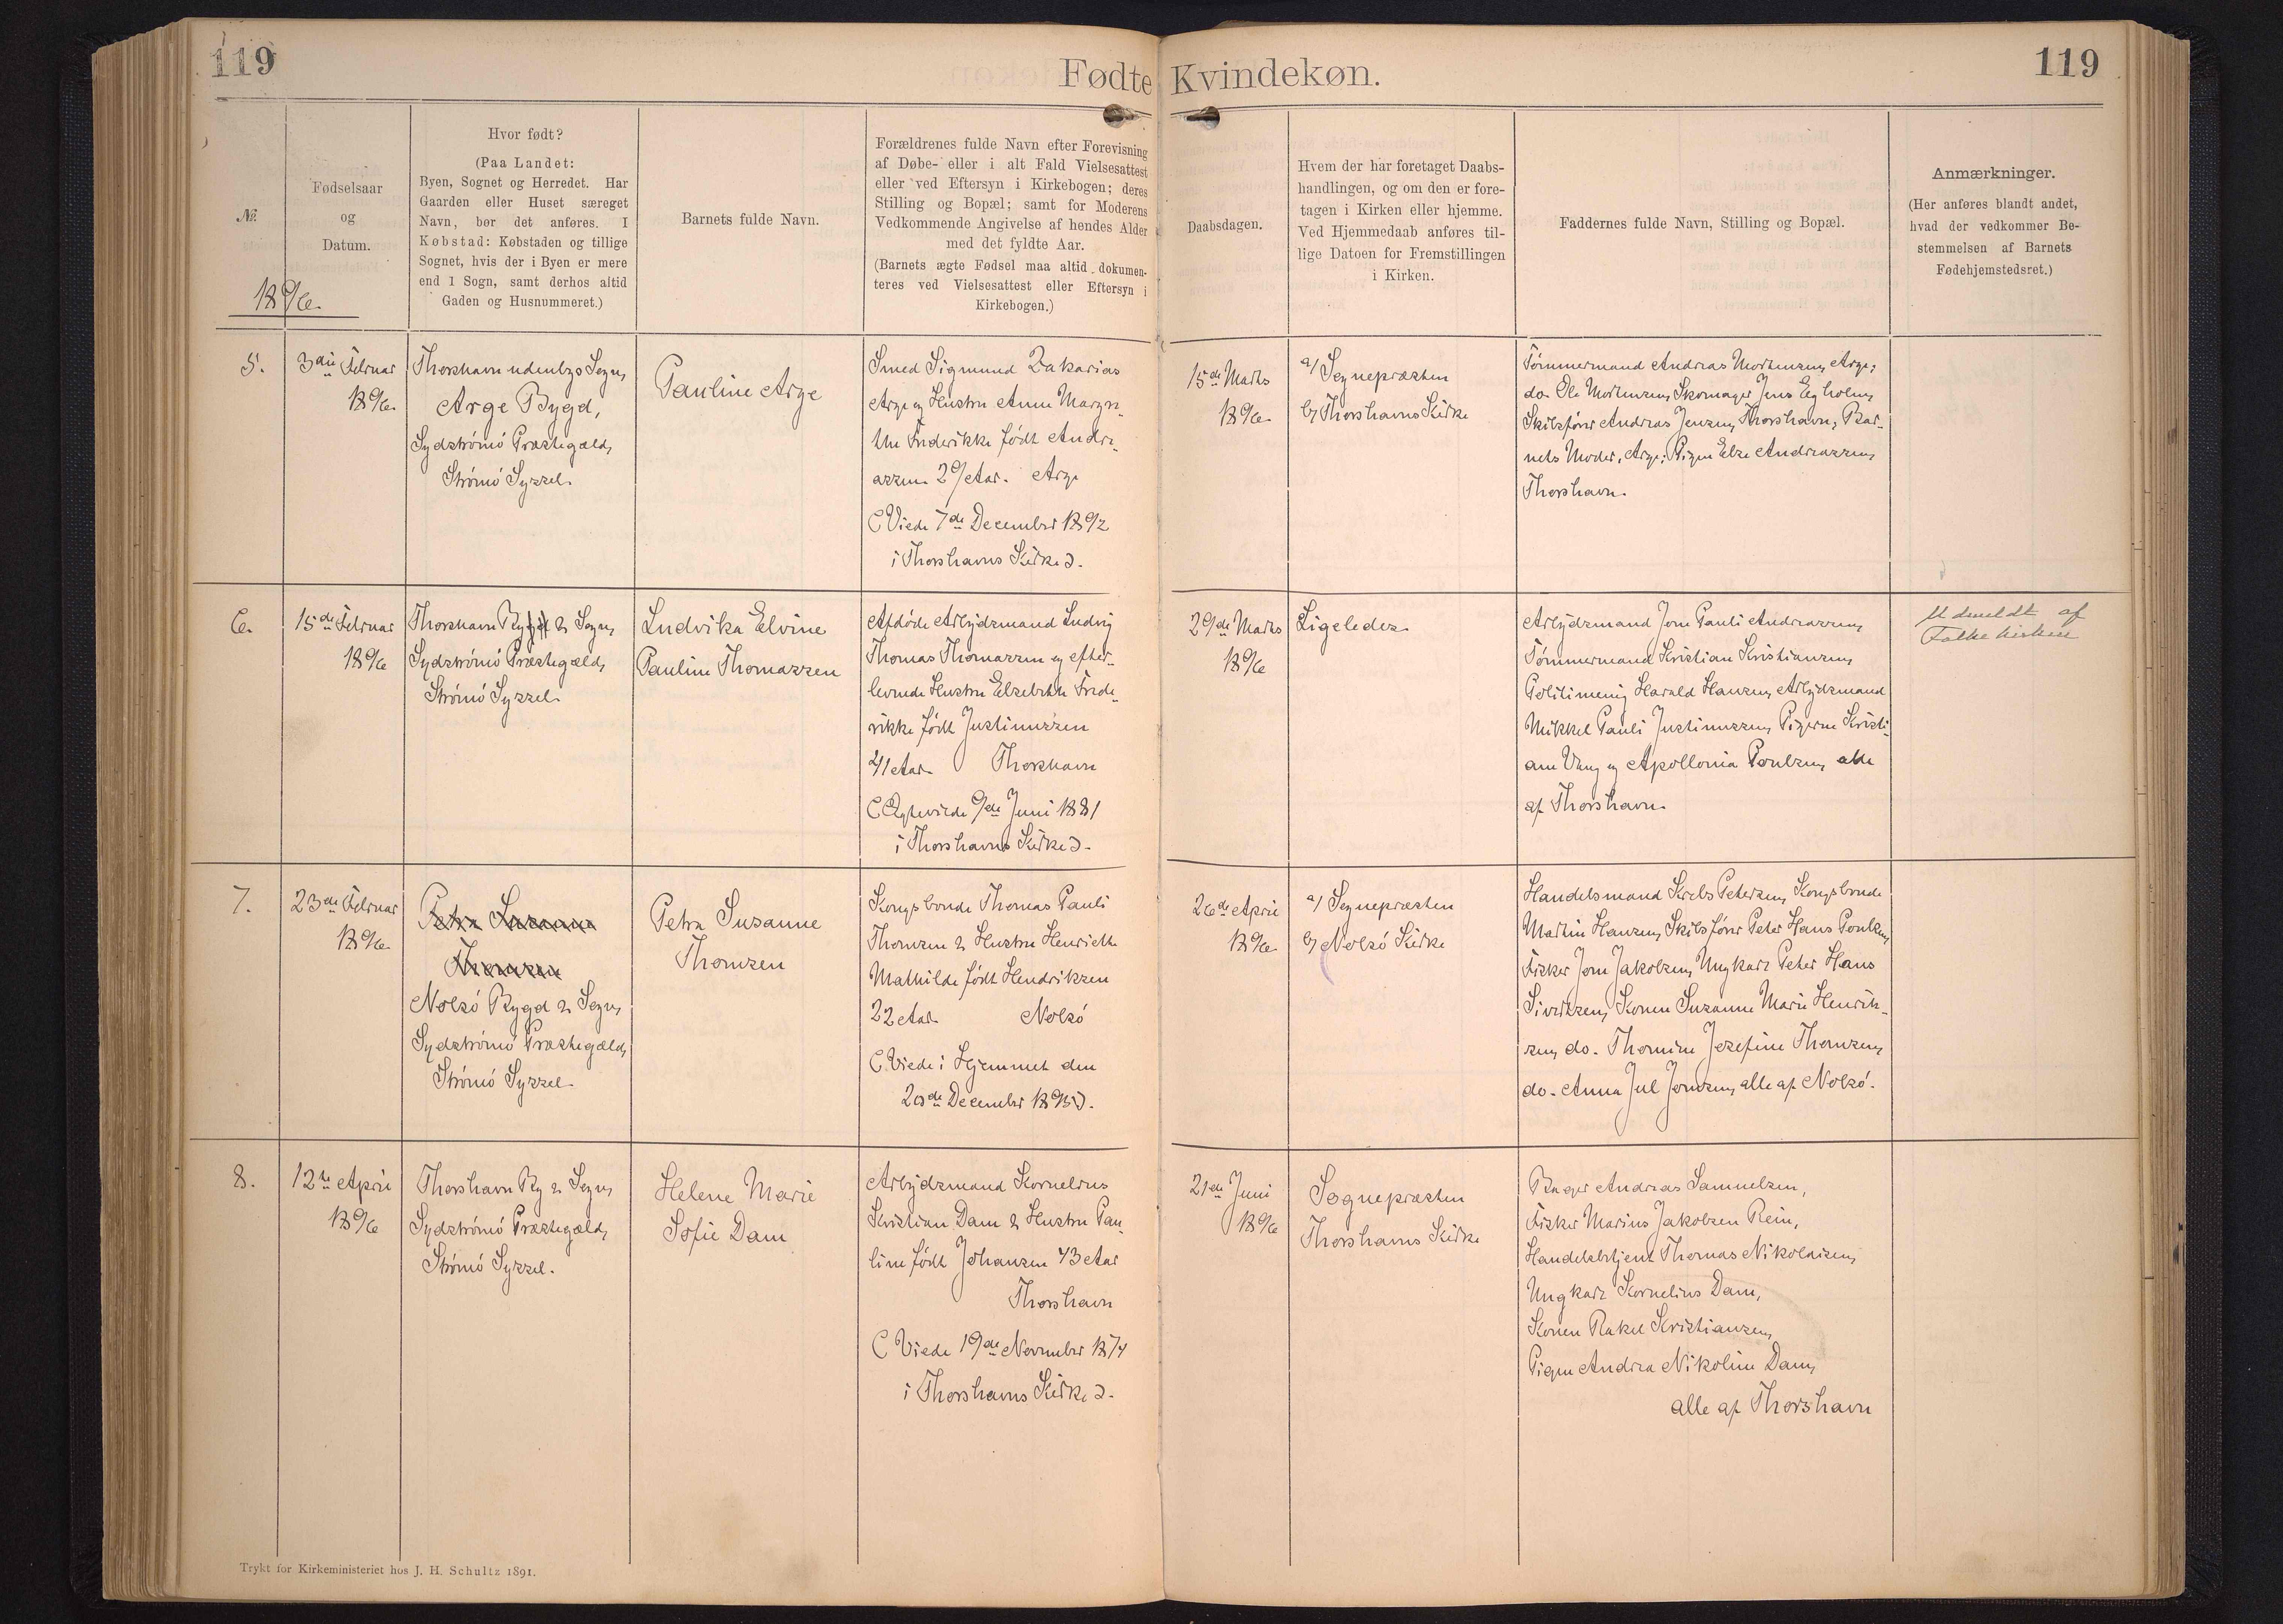 119
Fødte Kvindekøn.
119
№
1896.
Fødselsaar
og
Datum.
Hvor født?
(Paa Landet:
Byen, Sognet og Herredet. Har
Gaarden eller Huset særeget
Navn, bør det anføres. I
Købstad: Købstaden og tillige
Sognet, hvis der i Byen er mere
end 1 Sogn, samt derhos altid
Gaden og Husnummeret.)
Barnets fulde Navn.
Forældrenes fulde Navn efter Forevisning
af Døbe- eller i alt Fald Vielsesattest
eller ved Eftersyn i Kirkebogen; deres
Stilling og Bopæl; samt for Moderens
Vedkommende Angivelse af hendes Alder
med det fyldte Aar.
(Barnets ægte Fødsel maa altid dokumen-
teres ved Vielsesattest eller Eftersyn i
Kirkebogen.)
Daabsdagen.
Hvem der har foretaget Daabs-
handlingen, og om den er fore-
tagen i Kirken eller hjemme.
Ved Hjemmedaab anføres til-
lige Datoen for Fremstillingen
i Kirken.
Faddernes fulde Navn, Stilling og Bopæl.
Anmærkninger.
(Her anføres blandt andet,
hvad der vedkommer Be-
stemmelsen af Barnets
Fødehjemstedsret.)
5.
3die Februar
1896.
Thorshavn udenbys Sogn,
Arge Bygd,
Sydstrømö Præstegæld,
Strömö Syssel.
Pauline Arge
Smed Sigmund Zakarias
Arge og Hustru Anne Margre-
the Frederikke født Andre-
assen 29 Aar. Arge
(Viede 7de December 1892
i Thorshavns Kirke).
15de Marts
1896.
a/ Sognepræsten
b/ Thorshavns Kirke
Tömmermand Andreas Mortensen, Arge;
do. Ole Mortensen, Skomager Jens Egholm,
Skibsförer Andreas Jensen, Thorshavn; Bar-
nets Moder, Arge; Pigen Else Andreassen,
Thorshavn.
6.
15de Februar
1896
Thorshavn By & Sogn,
Sydströmö Præstegæld,
Strömö Syssel.
Ludvika Elvine
Pauline Thomassen
Afdöde Arbejdsmand Ludvig
Thomas Thomassen og efter-
levende Hustru Elsebeth Frede-
rikke født Justinussen
41 Aar. Thorshavn
(Ægteviede 9de Juni 1881
i Thorshavns Kirke).
29de Marts
1896
Ligeledes
Arbejdsmand Jom Pauli Andreassen,
Tömmermand Kristian Kristiansen,
Politimenig Harald Hansen, Arbejdsmand
Mikkel Pauli Justinussen, Pigerne Kristi-
ane Vang og Apollonia Poulsen, alle
af Thorshavn.
Udmeldt af
Folkekirken
7.
23de Februar
1896.
Petra Susanne
Thomsen
Nolsö Bygd & Sogn,
Sydströmö Præstegæld,
Strömö Syssel.
Petra Susanne
Thomsen
Kongsbonde Thomas Pauli
Thomsen & Hustru Henriette
Mathilde født Hendriksen
22 Aar. Nolsö
(Viede i Hjemmet den
20de December 1895).
26de April
1896.
a/ Sognepræsten
b/ Nolsö Kirke
Handelsmand Krebs Petersen, Kongsbonde
Martin Hansen, Skibsförer Peter Hans Poulsen,
Fisker Jom Jakobsen, Ungkarl Peter Hans
Sivertsen, Konen Susanne Marie Henrik-
sen, do. Thomine Josefine Thomsen,
do. Anna Jul Joensen, alle af Nolsö.
8.
12te April
1896
Thorshavn By & Sogn,
Sydströmö Præstegæld,
Strömö Syssel.
Helene Marie
Sofie Dam
Arbejdsmand Kornelius
Kristian Dam & Hustru Pau-
line født Johansen 43 Aar
Thorshavn
(Viede 19de November 1874
i Thorshavns Kirke).
21de Juni
1896
Sognepræsten
Thorshavns Kirke
Bager Andreas Samuelsen,
Fisker Marius Jakobsen Rein,
Handelsbetjent Thomas Nikolaisen,
Ungkarl Kornelius Dam,
Konen Rakel Kristiansen,
Pigen Andrea Nikoline Dam,
alle af Thorshavn
Trykt for Kirkeministeriet hos J. H. Schultz 1891.